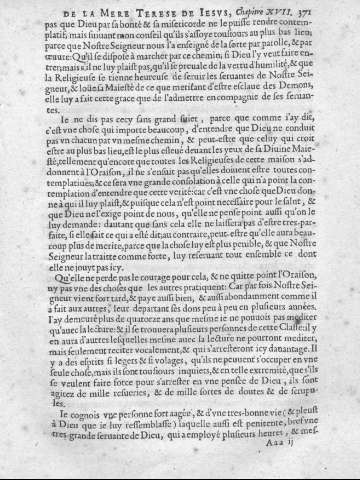 DE LA MERE TERESE DE IESVS, Chapitre XVII. 371
pas que Dieu par sa bonté & sa misericorde ne la puisse rendre contem-
platif, mais suiuant mon conseil qu'ils s'assoye tousiours au plus bas lieu;
parce que Nostre Seigneur nous l'a enseigné de la sorte par parole, & par
œuure. Qu'il se dispose à marcher par ce chemin, si Dieu l'y veut faire en-
trer: mais s'il ne luy plaist pas, qu'il se preuale de la vertu d'humilité, & que
la Religieuse se tienne heureuse de seruir les seruantes de Nostre Sei-
gneur, & loüe sa Maiesté de ce que meritant d'estre esclaue des Demons,
elle luy a fait cette grace que de l'admettre en compagnie de ses seruan-
tes.
Ie ne dis pas cecy sans grand suiet, parce que comme i'ay dit,
c'est vne chose qui importe beaucoup, d'entendre que Dieu ne conduit
pas vn chacun par vn mesme chemin, & peut-estre que celuy qui croit
estre au plus bas lieu, est le plus esleué deuant les yeux de sa Diuine Maie-
sté, tellement qu'encore que toutes les Religieuses de cette maison s'ad-
donnent à l'Oraison, il ne s'ensuit pas qu'elles doiuent estre toutes con-
templatiues; & ce sera vne grande consolation à celle qui n'a point la con-
templation d'entendre que cette verité: car c'est vne chose que Dieu don-
ne à qui il luy plaist, & puisque cela n'est point necessaire pour le salut, &
que Dieu ne l'exige point de nous, qu'elle ne pense point aussi qu'on le
luy demande: dautant que sans cela elle ne laissera pas d'estre tres-par-
faite, si elle fait ce qui a esté dit; au contraire, peut-estre qu'elle aura beau-
coup plus de merite, parce que la chose luy est plus penible, & que Nostre
Seigneur la traitte comme forte, luy reseruant tout ensemble ce dont
elle ne jouyt pas icy.
Qu'elle ne perde pas le courage pour cela, & ne quitte point l'Oraison,
ny pas vne des choses que les autres pratiquent: Car par fois Nostre Sei-
gneur vient fort tard, & paye aussi bien, & aussi abondamment comme il
a fait aux autres, leur departant ses dons peu à peu en plusieurs années.
I'ay demeuré plus de quatorze ans que mesme ie ne pouuois pas mediter
qu'auec la lecture: & il se trouuera plusieurs personnes de cette Classe: il y
en aura d'autres lesquelles mesme auec la lecture ne pourront mediter,
mais seulement reciter vocalement, & qui s'arresteront icy dauantage. Il
y a des esprits si legers & si volages, qu'ils ne peuuent s'occuper en vne
seule chose, mais ils sont tousiours inquiets, & en telle extremité, que s'ils
se veulent faire force pour s'arrester en vne pensée de Dieu, ils sont
agitez de mille resueries, & de mille sortes de doutes & de scrupu-
les.
Ie cognois vne personne fort aagée, & d'vne tres-bonne vie (& pleust
à Dieu que ie luy ressemblasse) laquelle aussi est penitente, bref vne
tres grande seruante de Dieu, qui a employé plusieurs heures, & mes-
Aaa ij